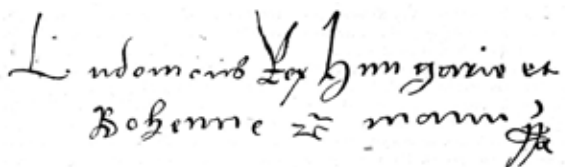 Ludovicus Rex Hungarie et
Bohemie etc manu ppa